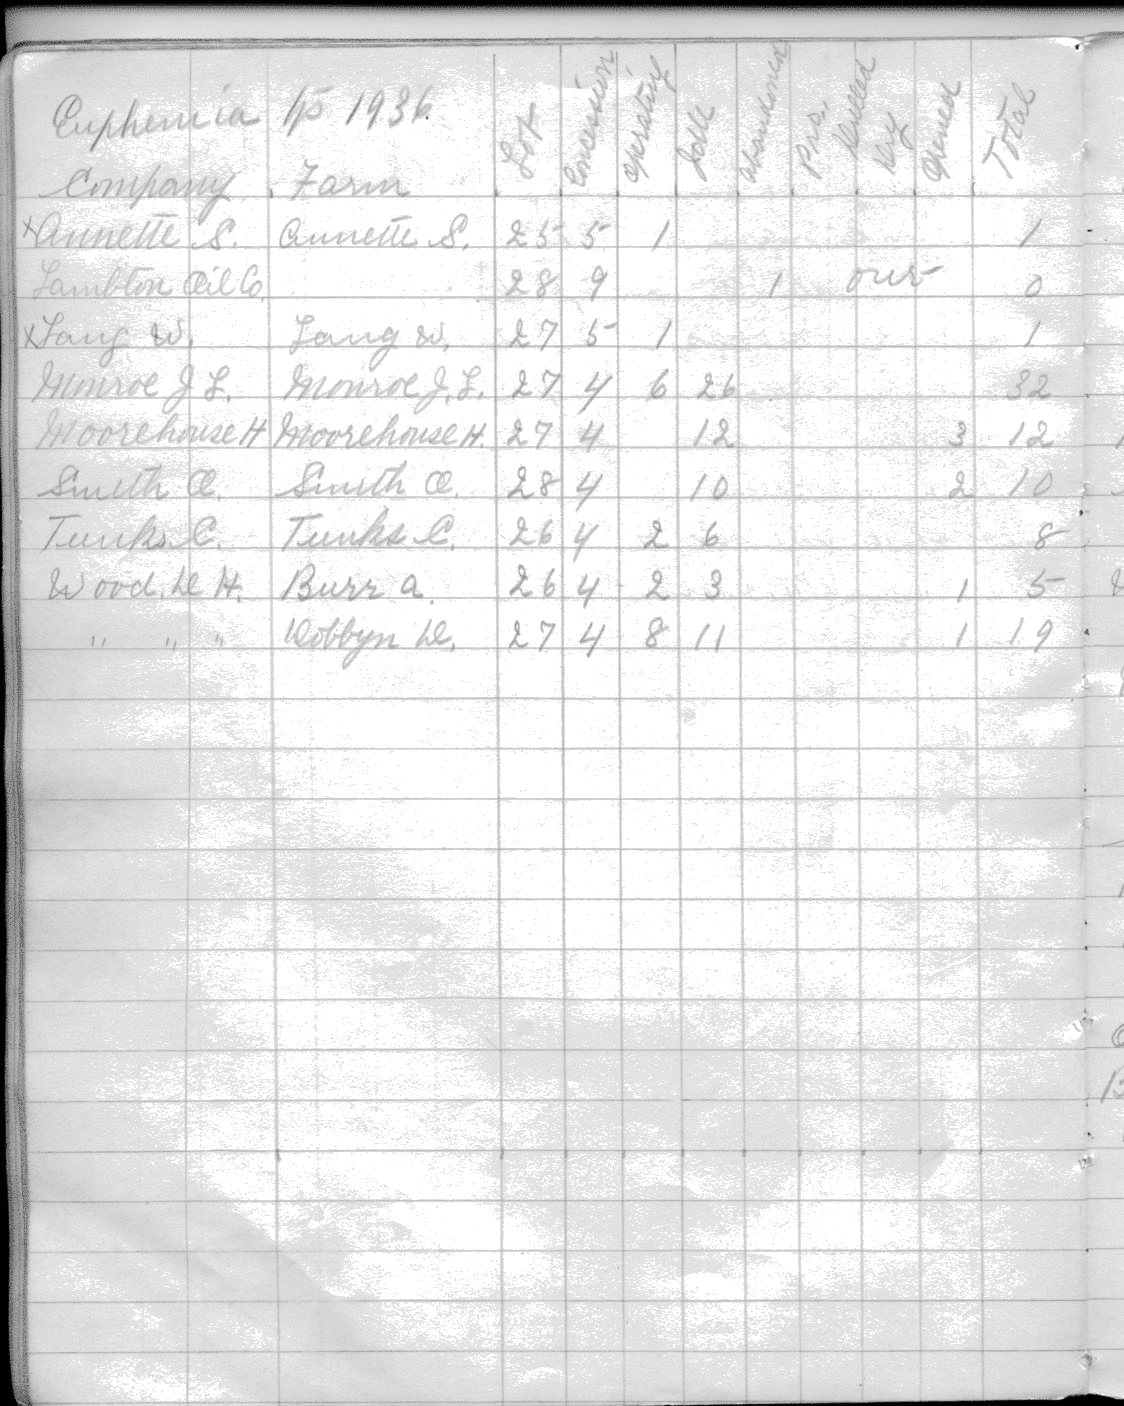 Euphemia Tp 1936.
Company Farm Lot Concession Operating Idle Abandoned Pro. Drilled Dry Opened Total
x Annette S. Annette S. 25 5 1 1
Lambton Oil Co. 28 9 1 0
x Lang W. Lang W. 27 5 1 1
Monroe J L. Monroe J. L. 27 4 6 26 32
Moorehouse H Moorehouse H. 27 4 12 3 12
Smith O. Smith O. 28 4 10 2 10
Tunks C. Tunks C. 26 4 2 6 8
Wood. D H. Burr a. 26 4 2 3 1 5
" " " Dobbyn D. 27 4 8 11 1 19